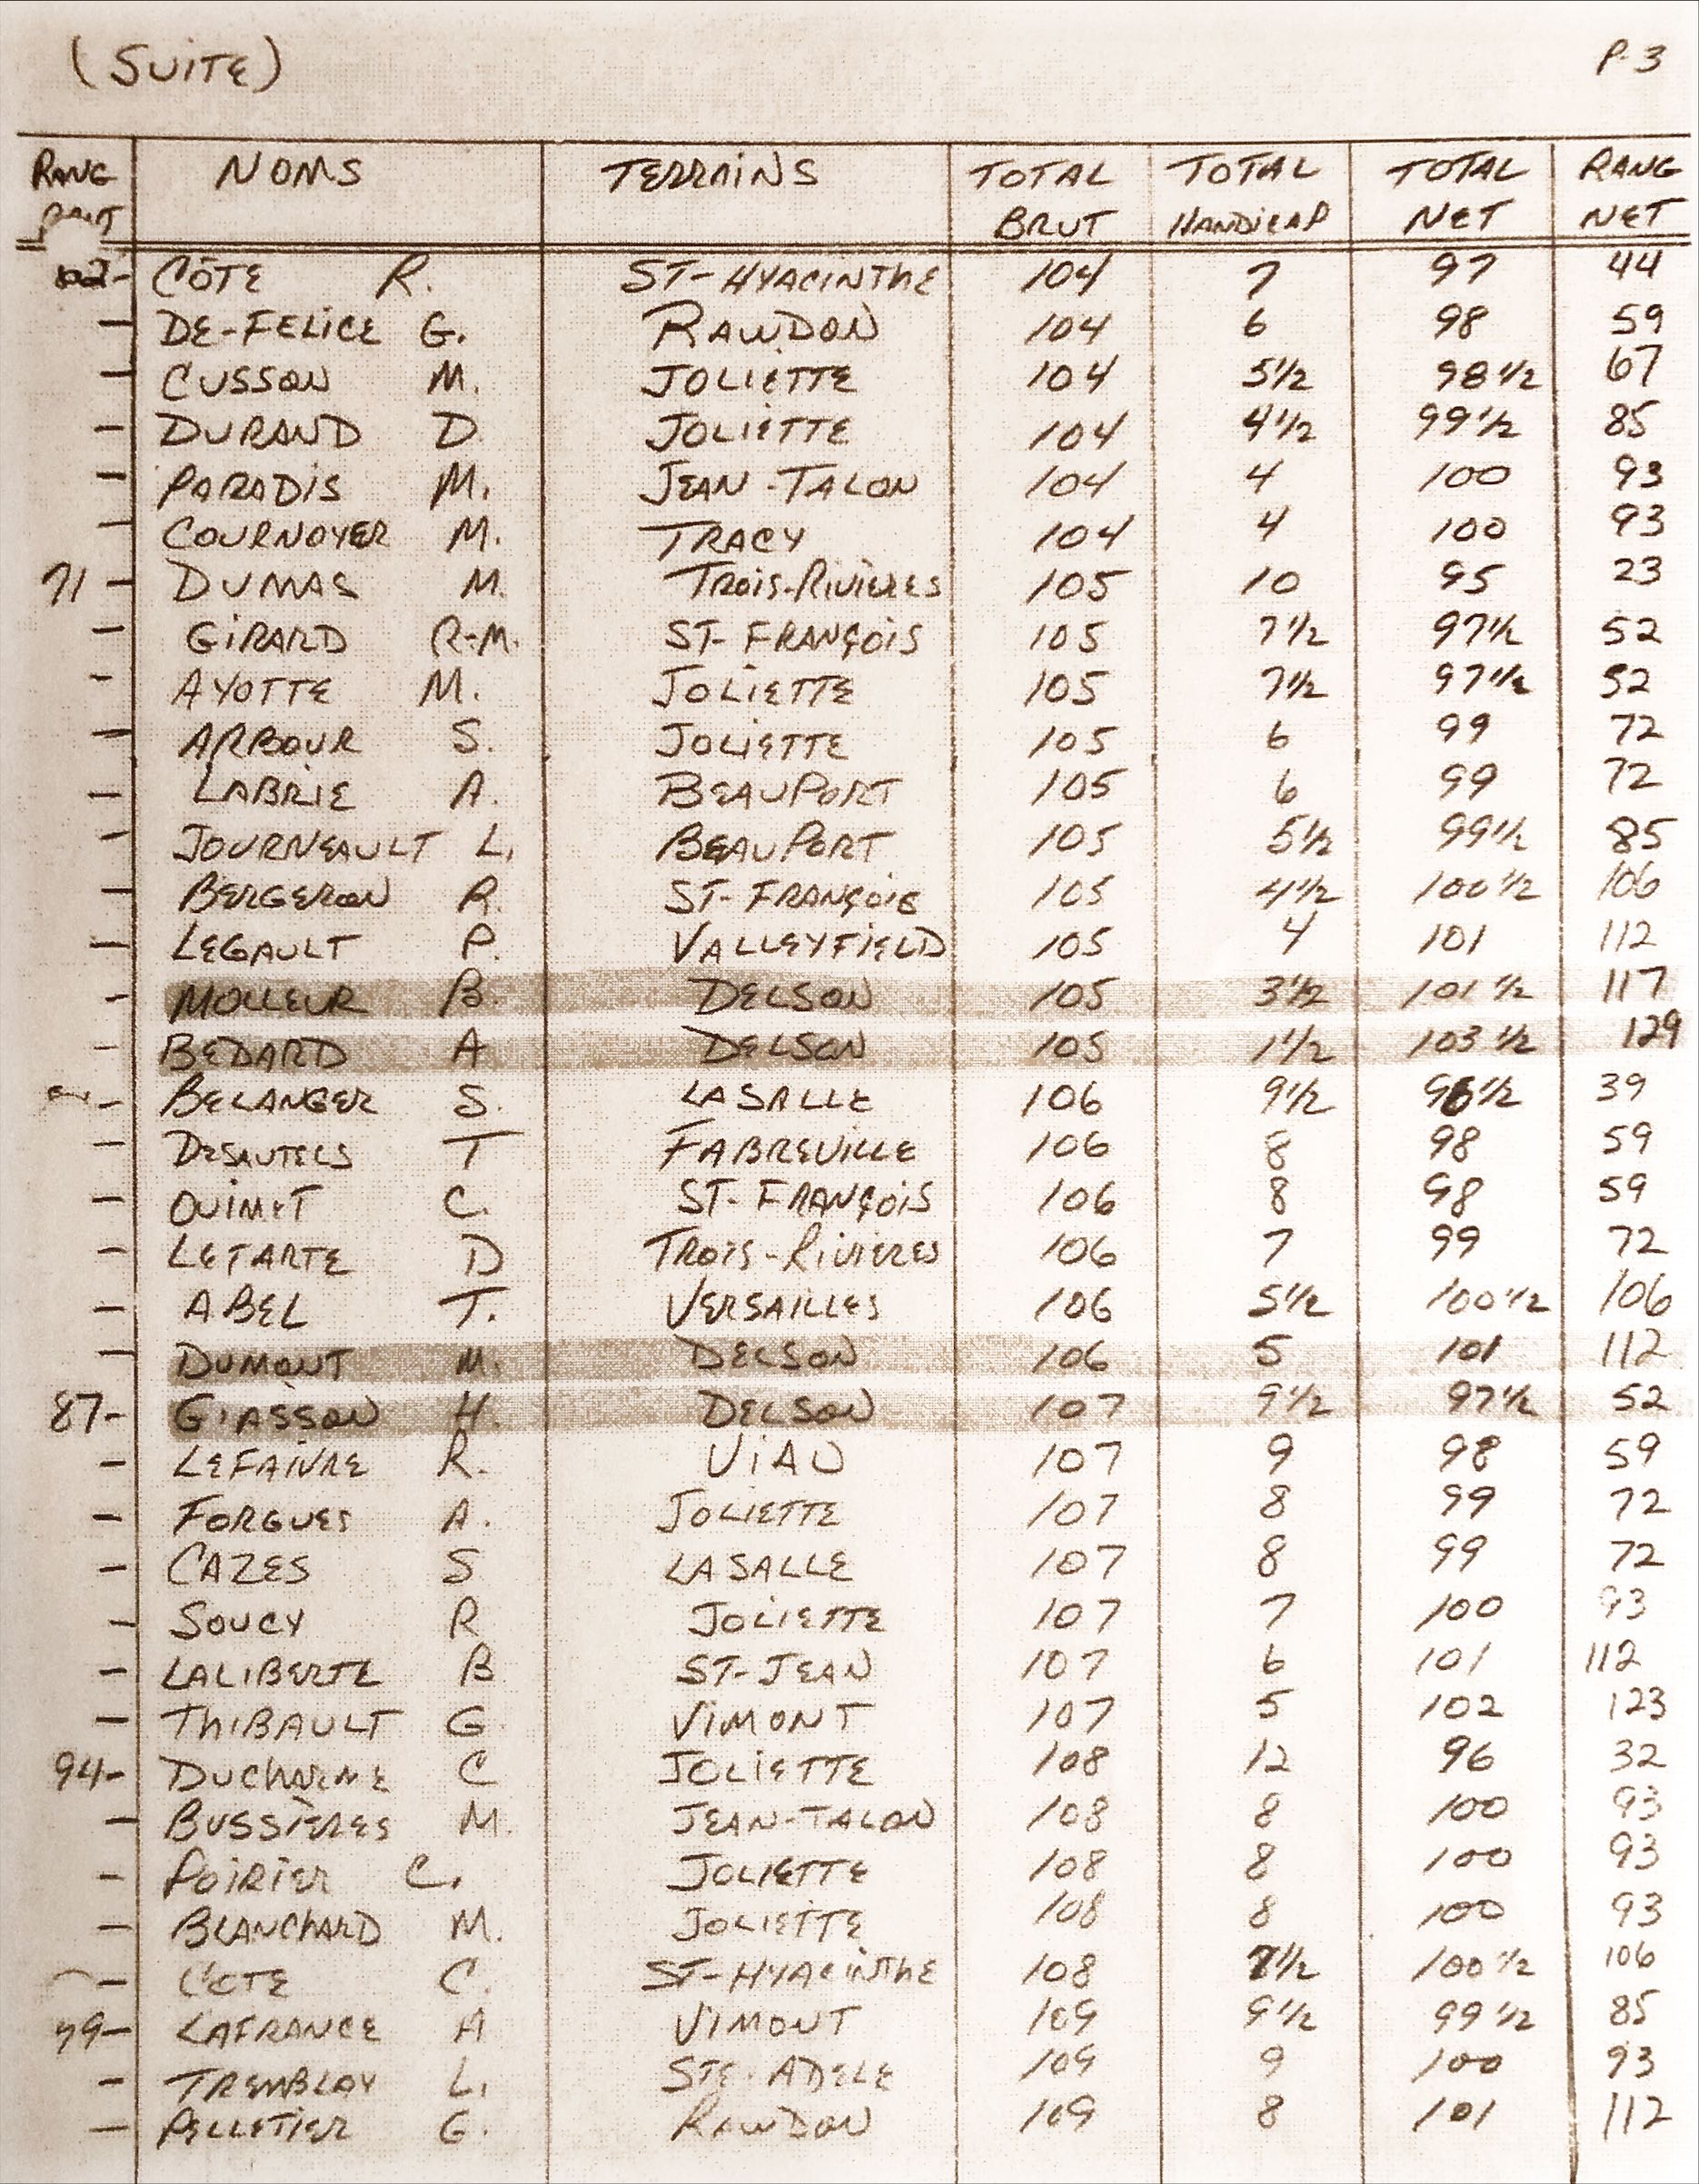 (SUITE) P-3
RANG NOMS TERRAINS TOTAL TOTAL TOTAL RANG
BRUT HANDICAP NET NET
CÔTE R. ST-HYACINTHE 104 7 97 44
- DE-FELICE G. RAWDON 104 6 98 59
- CUSSON M. JOLIETTE 104 5 1/2 98 1/2 67
- DURAND D JOLIETTE 104 4 1/2 99 1/2 85
- PARADIS M. JEAN-TALON 104 4 100 93
- COURNOYER M. TRACY 104 4 100 93
71 - DUMAS M. TROIS-RIVIÈRES 105 10 95 23
- GIRARD R-M. ST-FRANÇOIS 105 7 1/2 97 1/2 52
- AYOTTE M. JOLIETTE 105 7 1/2 97 1/2 52
- ARBOUR S. JOLIETTE 105 6 99 72
- LABRIE A. BEAUPORT 105 6 99 72
- JOURNEAULT L. BEAUPORT 105 5 1/2 99 1/2 85
- BERGERON R. ST-FRANÇOIS 105 4 1/2 100 1/2 106
- LEGAULT P. VALLEYFIELD 105 4 101 112
- MOLLEUR B. DELSON 105 3 1/2 101 1/2 117
- BEDARD A DELSON 105 1 1/2 103 1/2 129
- BELANGER S. LASALLE 106 9 1/2 96 1/2 39
- DESAUTELS T FABREVILLE 106 8 98 59
- OUIMET C. ST-FRANÇOIS 106 8 98 59
- LETARTE D TROIS-RIVIÈRES 106 7 99 72
- ABEL T. VERSAILLES 106 5 1/2 100 1/2 106
- DUMONT M. DELSON 106 5 101 112
87- GIASSON H. DELSON 107 9 1/2 97 1/2 52
- LEFAIVRE R. VIAU 107 9 98 59
- FORGUES A. JOLIETTE 107 8 99 72
- CAZES S LASALLE 107 8 99 72
- SOUCY R JOLIETTE 107 7 100 93
- LALIBERTE B ST-JEAN 107 6 101 112
- THIBAULT G. VIMONT 107 5 102 123
94- DUCHARME C JOLIETTE 108 12 96 32
- BUSSIÈRES M. JEAN-TALON 108 8 100 93
- POIRIER C. JOLIETTE 108 8 100 93
- BLANCHARD M. JOLIETTE 108 8 100 93
- CÔTE C. ST-HYACINTHE 108 7 1/2 100 1/2 106
99- LAFRANCE A VIMONT 109 9 1/2 99 1/2 85
- TREMBLAY L. STE-ADELE 109 9 100 93
- PELLETIER G. RAWDON 109 8 101 112